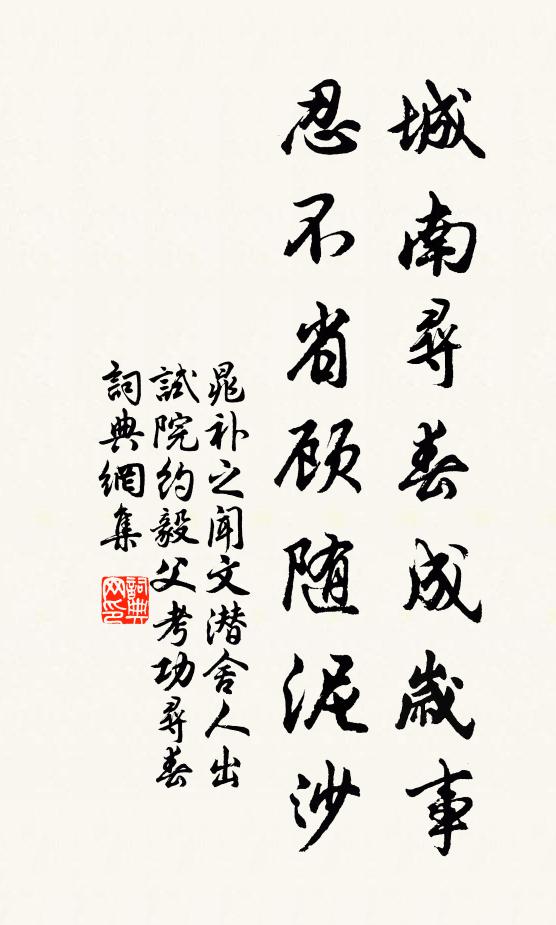 城南尋春成歲事
忍不省顾随泥沙
晁补之闻文潜舍人出
試院约毅父考功尋春
詞典網集
詞典